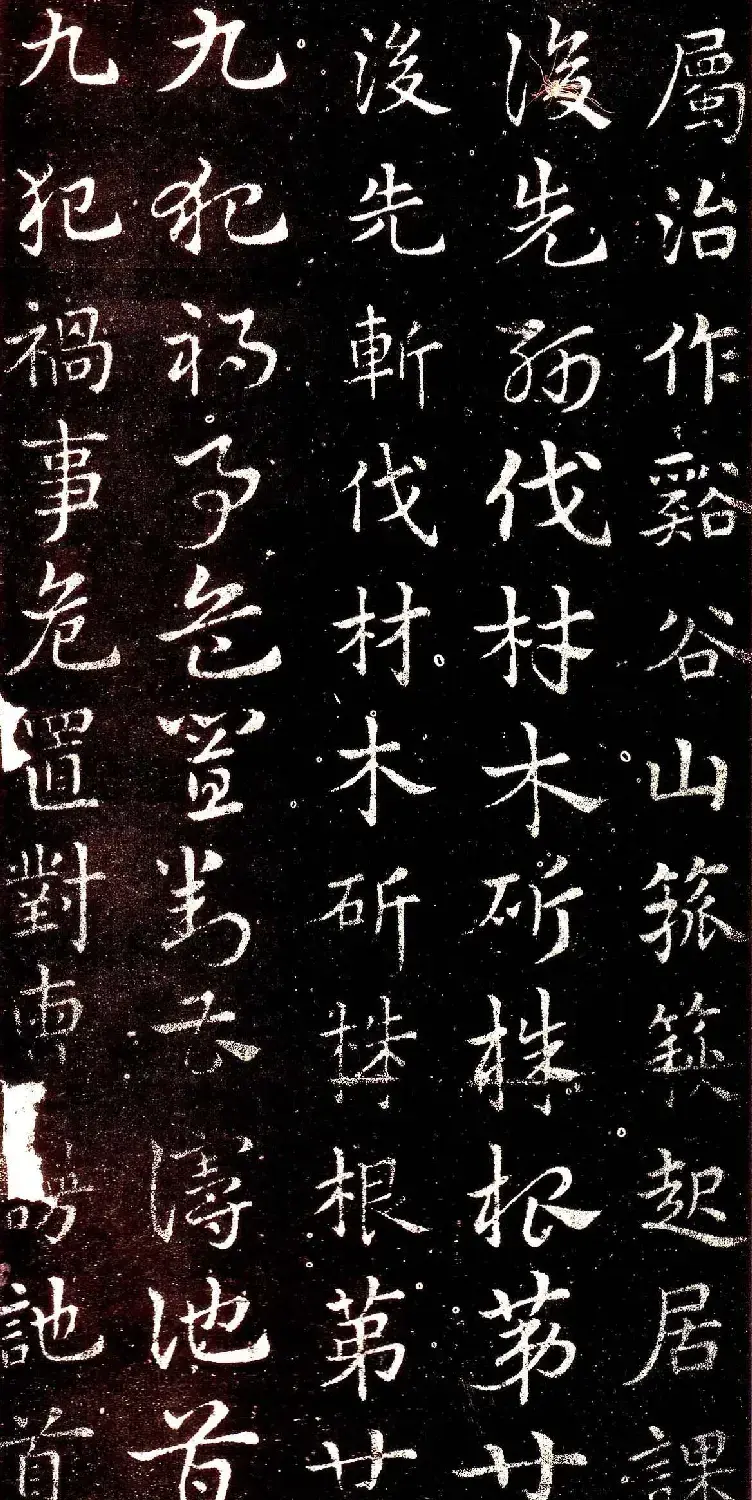 屬治作谿谷山箛篍起居課
後先斬伐材木斫株根第廿
後先斬伐材木斫株根第廿
九犯禍事危置對曹訑首
九犯禍事危置對曹訑首